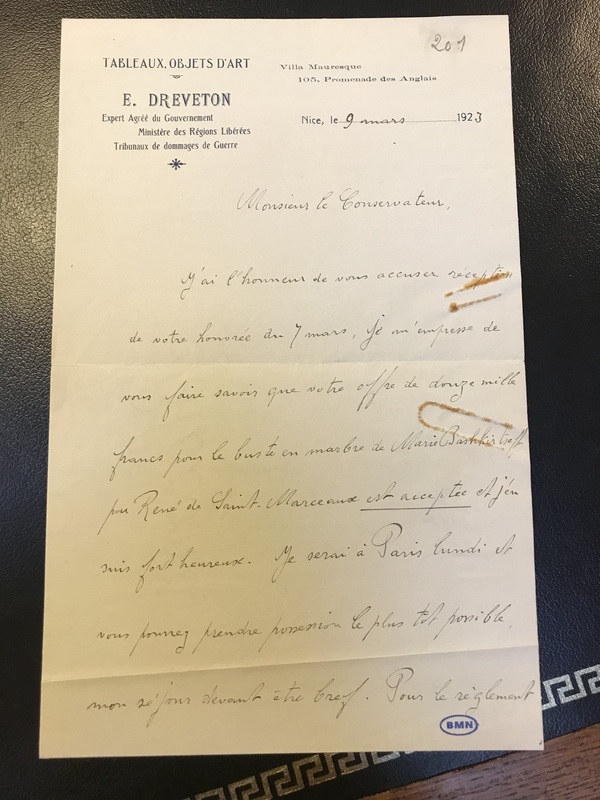 201
TABLEAUX, OBJETS D'ART
E. DREVETON
Expert Agréé du Gouvernement
Ministère des Régions Libérées
Tribunaux de dommages de Guerre
Villa Mauresque
105, Promenade des Anglais
Nice, le 9 mars 1923
Monsieur le Conservateur,
J'ai l'honneur de vous accuser réception
de votre honorée du 7 mars, je m'empresse de
vous faire savoir que votre offre de douze mille
francs pour le buste en marbre de Marie Bashkirtseff
par René de Saint-Marceaux est acceptée et j'en
suis fort heureux. Je serai à Paris lundi et
vous pourrez prendre possession le plus tôt possible,
mon séjour devant être bref. Pour le règlement
BMN